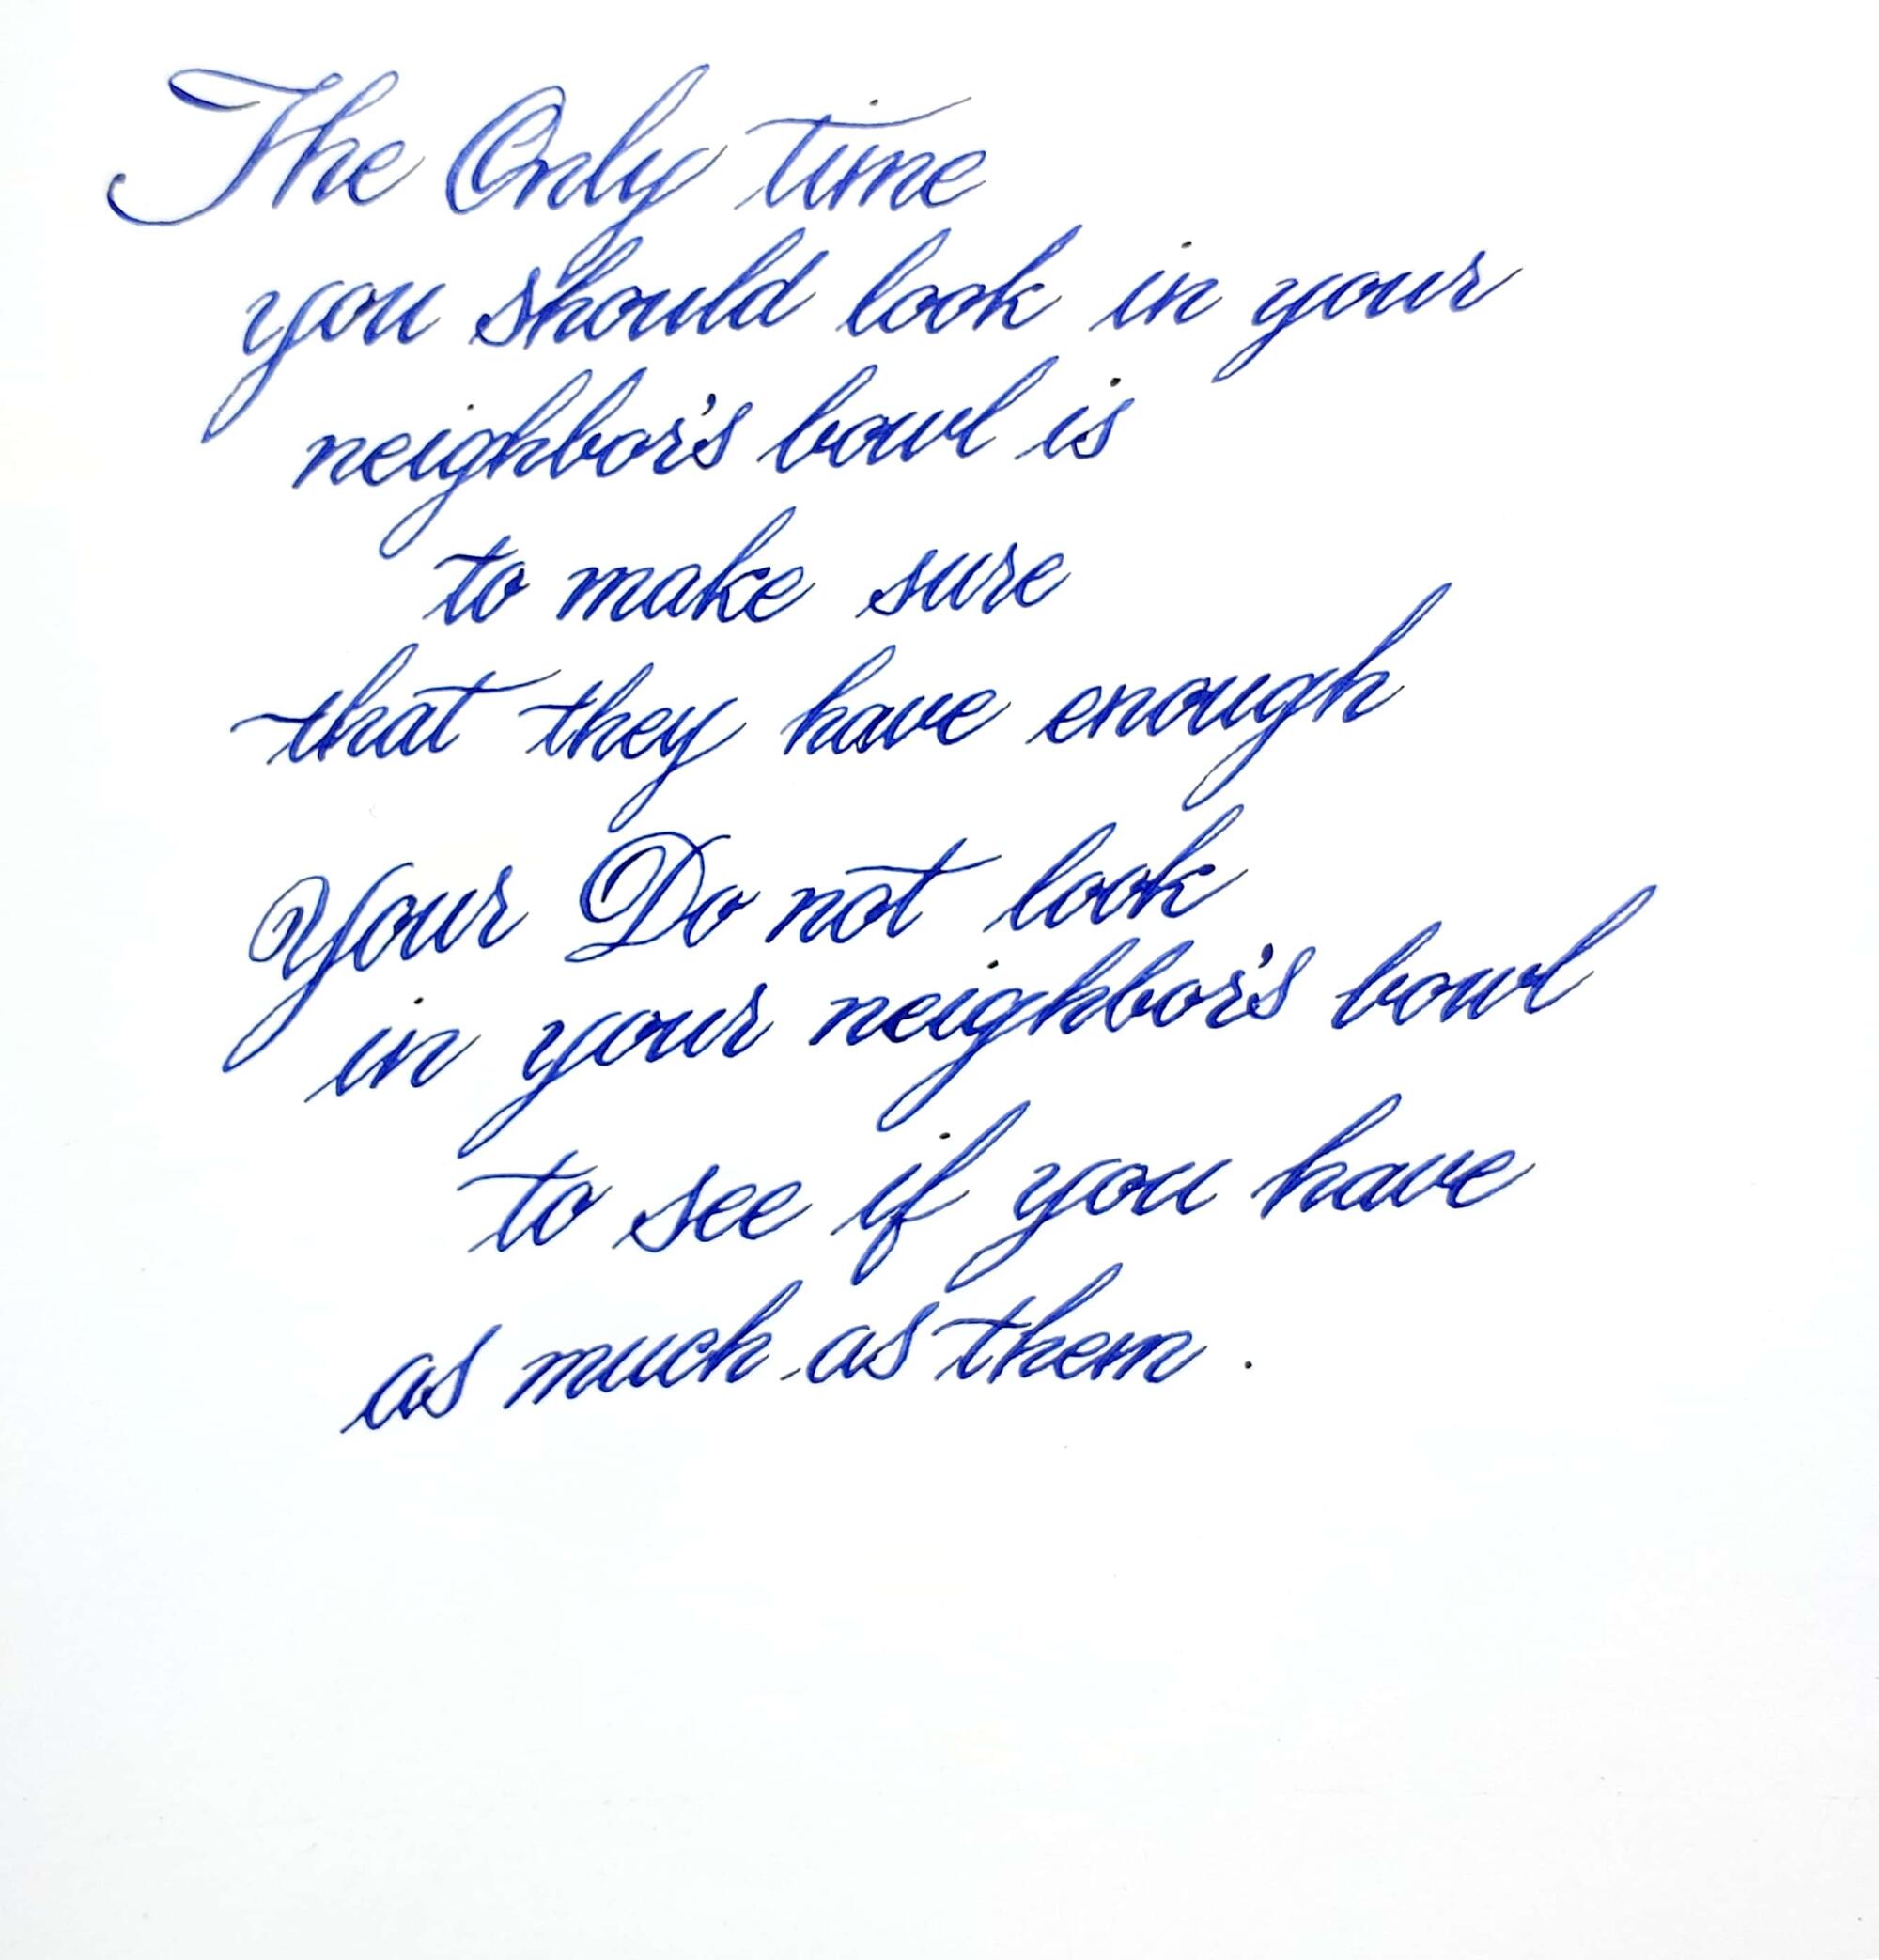 The Only time
you should look in your
neighbor's bowl is
to make sure
that they have enough
Your Do not look
in your neighbor's bowl
to see if you have
as much as them.